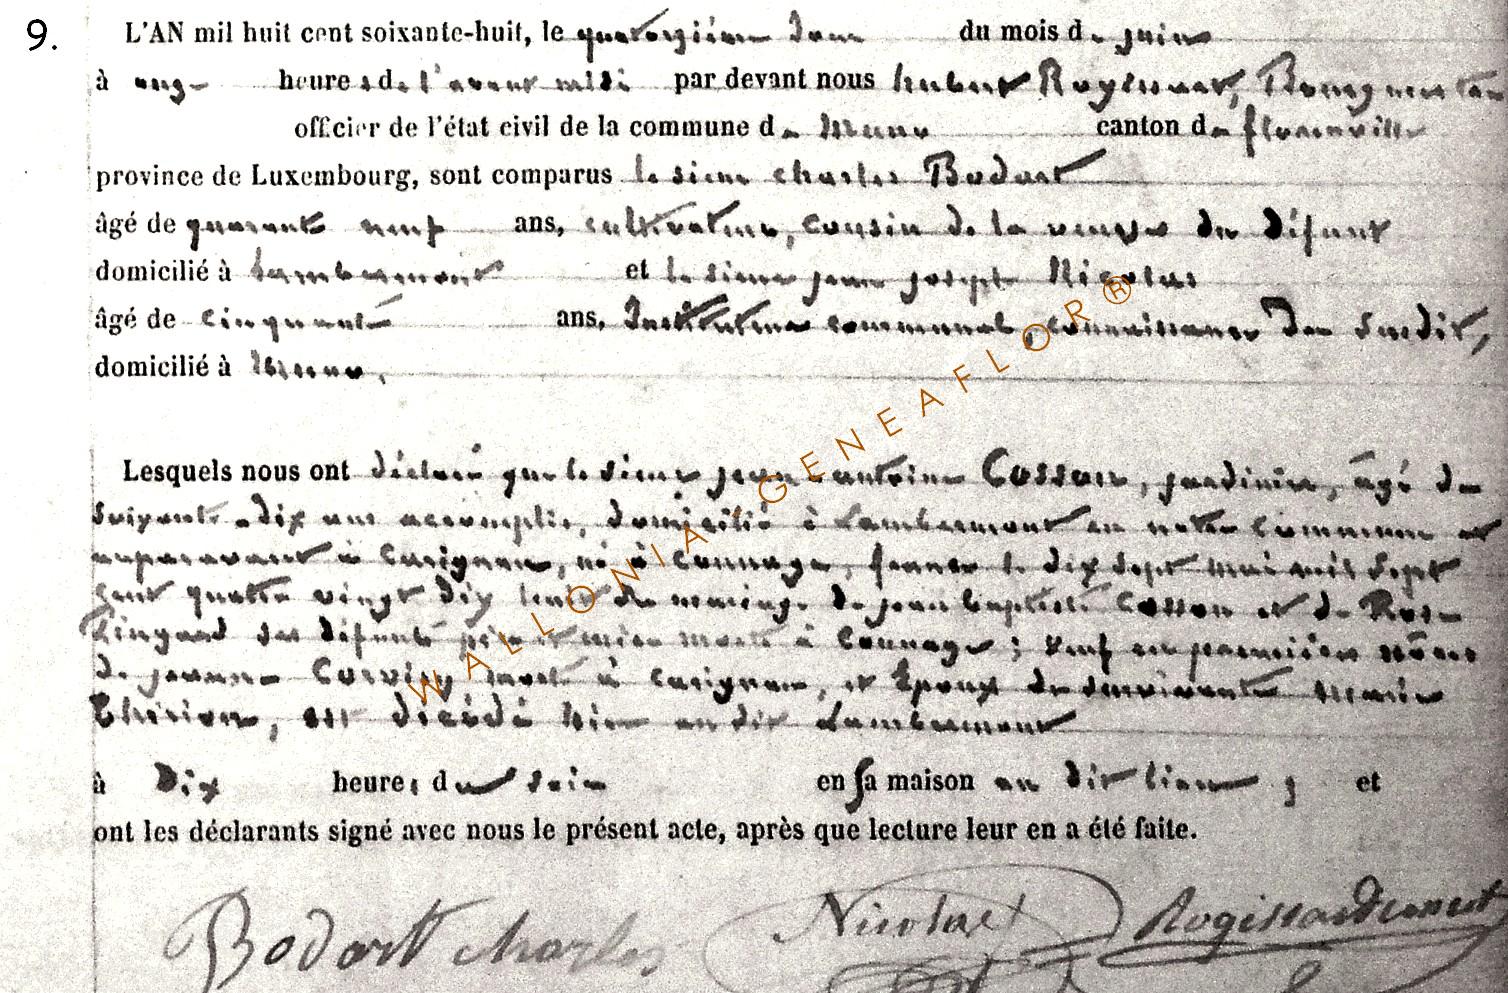 9. L'AN mil huit cent soixante-huit, le quatorzième jour du mois de juin
à onze heures de l'avant midi par devant nous hubert Bourgmestre
officier de l'état civil de la commune de Muno canton de florenville
province de Luxembourg, sont comparus le sieur charles Bodart
âgé de quarante neuf ans, cultivateur, cousin de la veuve du défunt
domicilié à Lambermont et le sieur jean joseph Nicolas
âgé de cinquante ans, Instituteur communal, connaissance du susdit,
domicilié à Muno,
Lesquels nous ont déclaré que le sieur jean antoine Cosson, jardinier, âgé de
soixante-dix ans accomplis, domicilié à Lambermont en notre commune et
auparavant à Carignan, né à Connage, france le dix sept mai mil sept
cent quatre vingt dix huit du mariage de jean baptiste Cosson et de Rose
ses défunts père et mère morts à Connage ; veuf en premières nôces
de jeanne morte à Carignan, et époux de survivante Marie
Thirion, est décédé hier au dit Lambermont
à Dix heures du soir en sa maison au dit lieu ; et
ont les déclarants signé avec nous le présent acte, après que lecture leur en a été faite.
Bodart charles Nicolas
WALLONIA-GENEAFLOR®